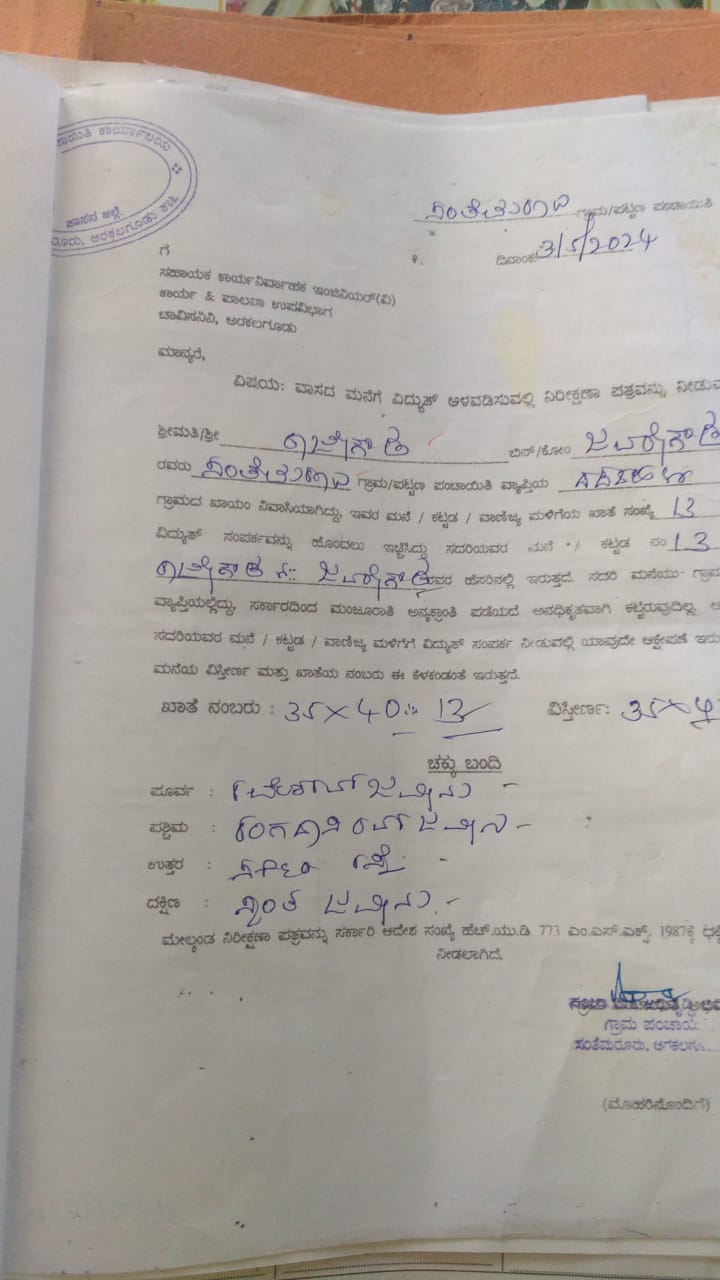 ಕಾರ್ಯಾಲಯ
ಹಾಸನ ಜಿಲ್ಲೆ.
ಅರಕಲಗೂಡು ತಾ.
ಗ್ರಾಮ/ಪಟ್ಟಣ ಪಂಚಾಯಿತಿ
ದಿನಾಂಕ: 3/5/2024
ಗೆ
ಸಹಾಯಕ ಕಾರ್ಯನಿರ್ವಾಹಕ ಇಂಜಿನಿಯರ್(ವಿ)
ಕಾರ್ಯ & ಪಾಲನಾ ಉಪವಿಭಾಗ
ಚಾವಿಸನಿನಿ, ಅರಕಲಗೂಡು
ಮಾನ್ಯರೆ,
ವಿಷಯ: ವಾಸದ ಮನೆಗೆ ವಿದ್ಯುತ್ ಅಳವಡಿಸುವಲ್ಲಿ ನಿರೀಕ್ಷಣಾ ಪತ್ರವನ್ನು ನೀಡುವ
ಶ್ರೀಮತಿ/ಶ್ರೀ ರಾಜೇಗೌಡ ಬಿನ್/ಕೋಂ ಜವರೇಗೌಡ
ರವರು ಗ್ರಾಮ/ಪಟ್ಟಣ ಪಂಚಾಯಿತಿ ವ್ಯಾಪ್ತಿಯ
ಗ್ರಾಮದ ಖಾಯಂ ನಿವಾಸಿಯಾಗಿದ್ದು, ಇವರ ಮನೆ / ಕಟ್ಟಡ / ವಾಣಿಜ್ಯ ಮಳಿಗೆಯ ಖಾತೆ ಸಂಖ್ಯೆ 13
ವಿದ್ಯುತ್ ಸಂಪರ್ಕವನ್ನು ಹೊಂದಲು ಇಚ್ಛಿಸಿದ್ದು ಸದರಿಯವರ ಮನೆ / ಕಟ್ಟಡ ನಂ 13
ರಾಜೇಗೌಡ ಜವರೇಗೌಡ ರವರ ಹೆಸರಿನಲ್ಲಿ ಇರುತ್ತದೆ. ಸದರಿ ಮನೆಯು ಗ್ರಾಮ
ವ್ಯಾಪ್ತಿಯಲ್ಲಿದ್ದು, ಸರ್ಕಾರದಿಂದ ಮಂಜೂರಾತಿ ಅನ್ಯಕ್ರಾಂತಿ ಪಡೆಯದೆ ಅನಧಿಕೃತವಾಗಿ ಕಟ್ಟಿರುವುದಿಲ್ಲ.
ಸದರಿಯವರ ಮನೆ / ಕಟ್ಟಡ / ವಾಣಿಜ್ಯ ಮಳಿಗೆಗೆ ವಿದ್ಯುತ್ ಸಂಪರ್ಕ ನೀಡುವಲ್ಲಿ ಯಾವುದೇ ಆಕ್ಷೇಪಣೆ ಇರು
ಮನೆಯ ವಿಸ್ತೀರ್ಣ ಮತ್ತು ಖಾತೆಯ ನಂಬರು ಈ ಕೆಳಕಂಡಂತೆ ಇರುತ್ತದೆ.
ಖಾತೆ ನಂಬರು : 35×40 13 ವಿಸ್ತೀರ್ಣ: 35×4
ಚಕ್ಕು ಬಂದಿ
ಪೂರ್ವ : ಜಮೀನು
ಪಶ್ಚಿಮ : ಜಮೀನು
ಉತ್ತರ : ರಸ್ತೆ
ದಕ್ಷಿಣ : ಸ್ವಂತ ಜಮೀನು.
ಮೇಲ್ಕಂಡ ನಿರೀಕ್ಷಣಾ ಪತ್ರವನ್ನು ಸರ್ಕಾರಿ ಆದೇಶ ಸಂಖ್ಯೆ ಹೆಚ್.ಯು.ಡಿ 773 ಎಂ.ಎಸ್.ಎಕ್ಸ್. 1987ಕ್ಕೆ
ನೀಡಲಾಗಿದೆ.
ಗ್ರಾಮ ಪಂಚಾಯಿ
ಸಂತೆಮರೂರು,
(ಮೊಹರಿನೊಂದಿಗೆ)